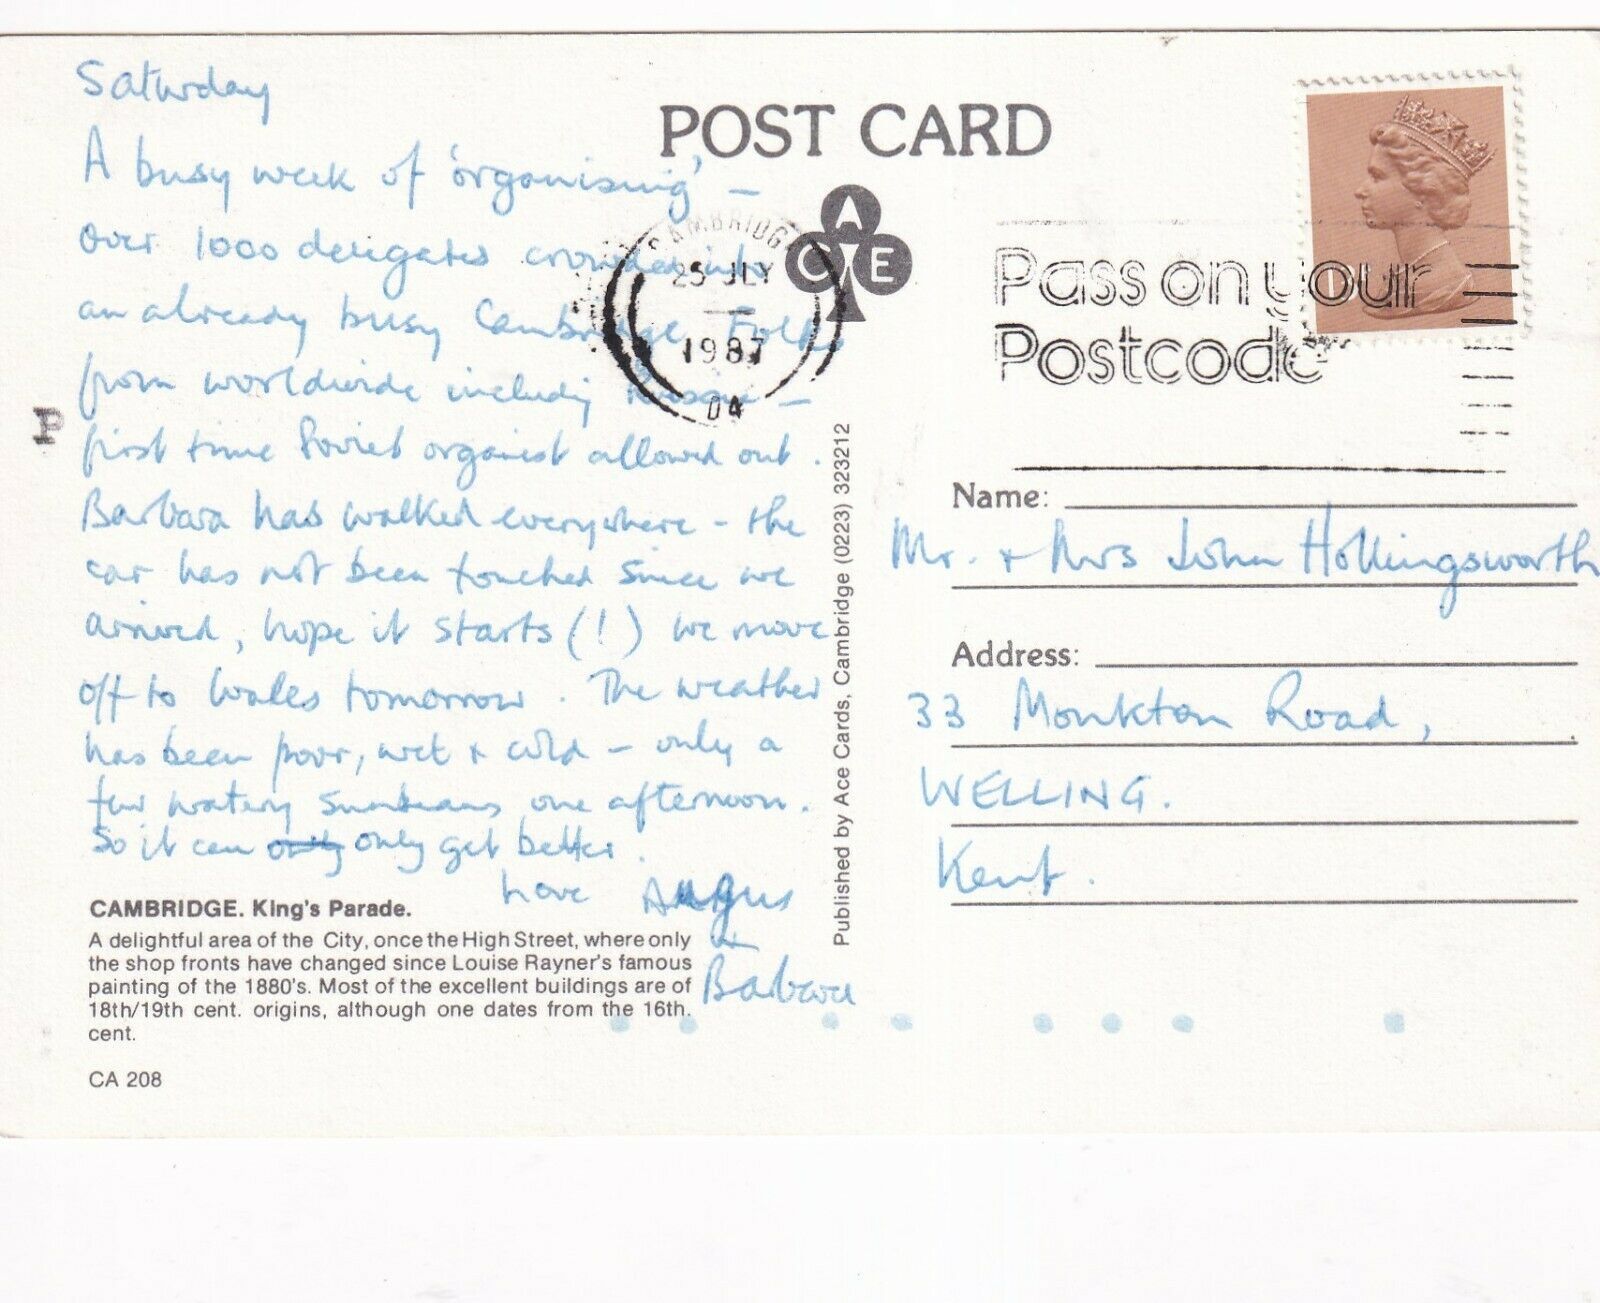 Saturday
A busy week of 'organising' –
over 1000 delegates crowded into
an already busy Cambridge. Folks
from worldwide including –
first time Soviet organist allowed out.
Barbara has walked everywhere – the
car has not been touched since we
arrived, hope it starts (!) We move
off to Wales tomorrow. The weather
has been poor, wet & cold – only a
few watery sunbeams one afternoon.
So it can only get better.
Love Angus
&
Barbara
CAMBRIDGE. King's Parade.
A delightful area of the City, once the High Street, where only
the shop fronts have changed since Louise Rayner's famous
painting of the 1880's. Most of the excellent buildings are of
18th/19th cent. origins, although one dates from the 16th.
cent.
CA 208
P
POST CARD
ACE
CAMBRIDGE
25 JLY
1987
D4
Pass on your
Postcode
Published by Ace Cards, Cambridge (0223) 323212
Name:
Mr. & Mrs John Hollingsworth
Address:
33 Monkton Road,
WELLING.
Kent.